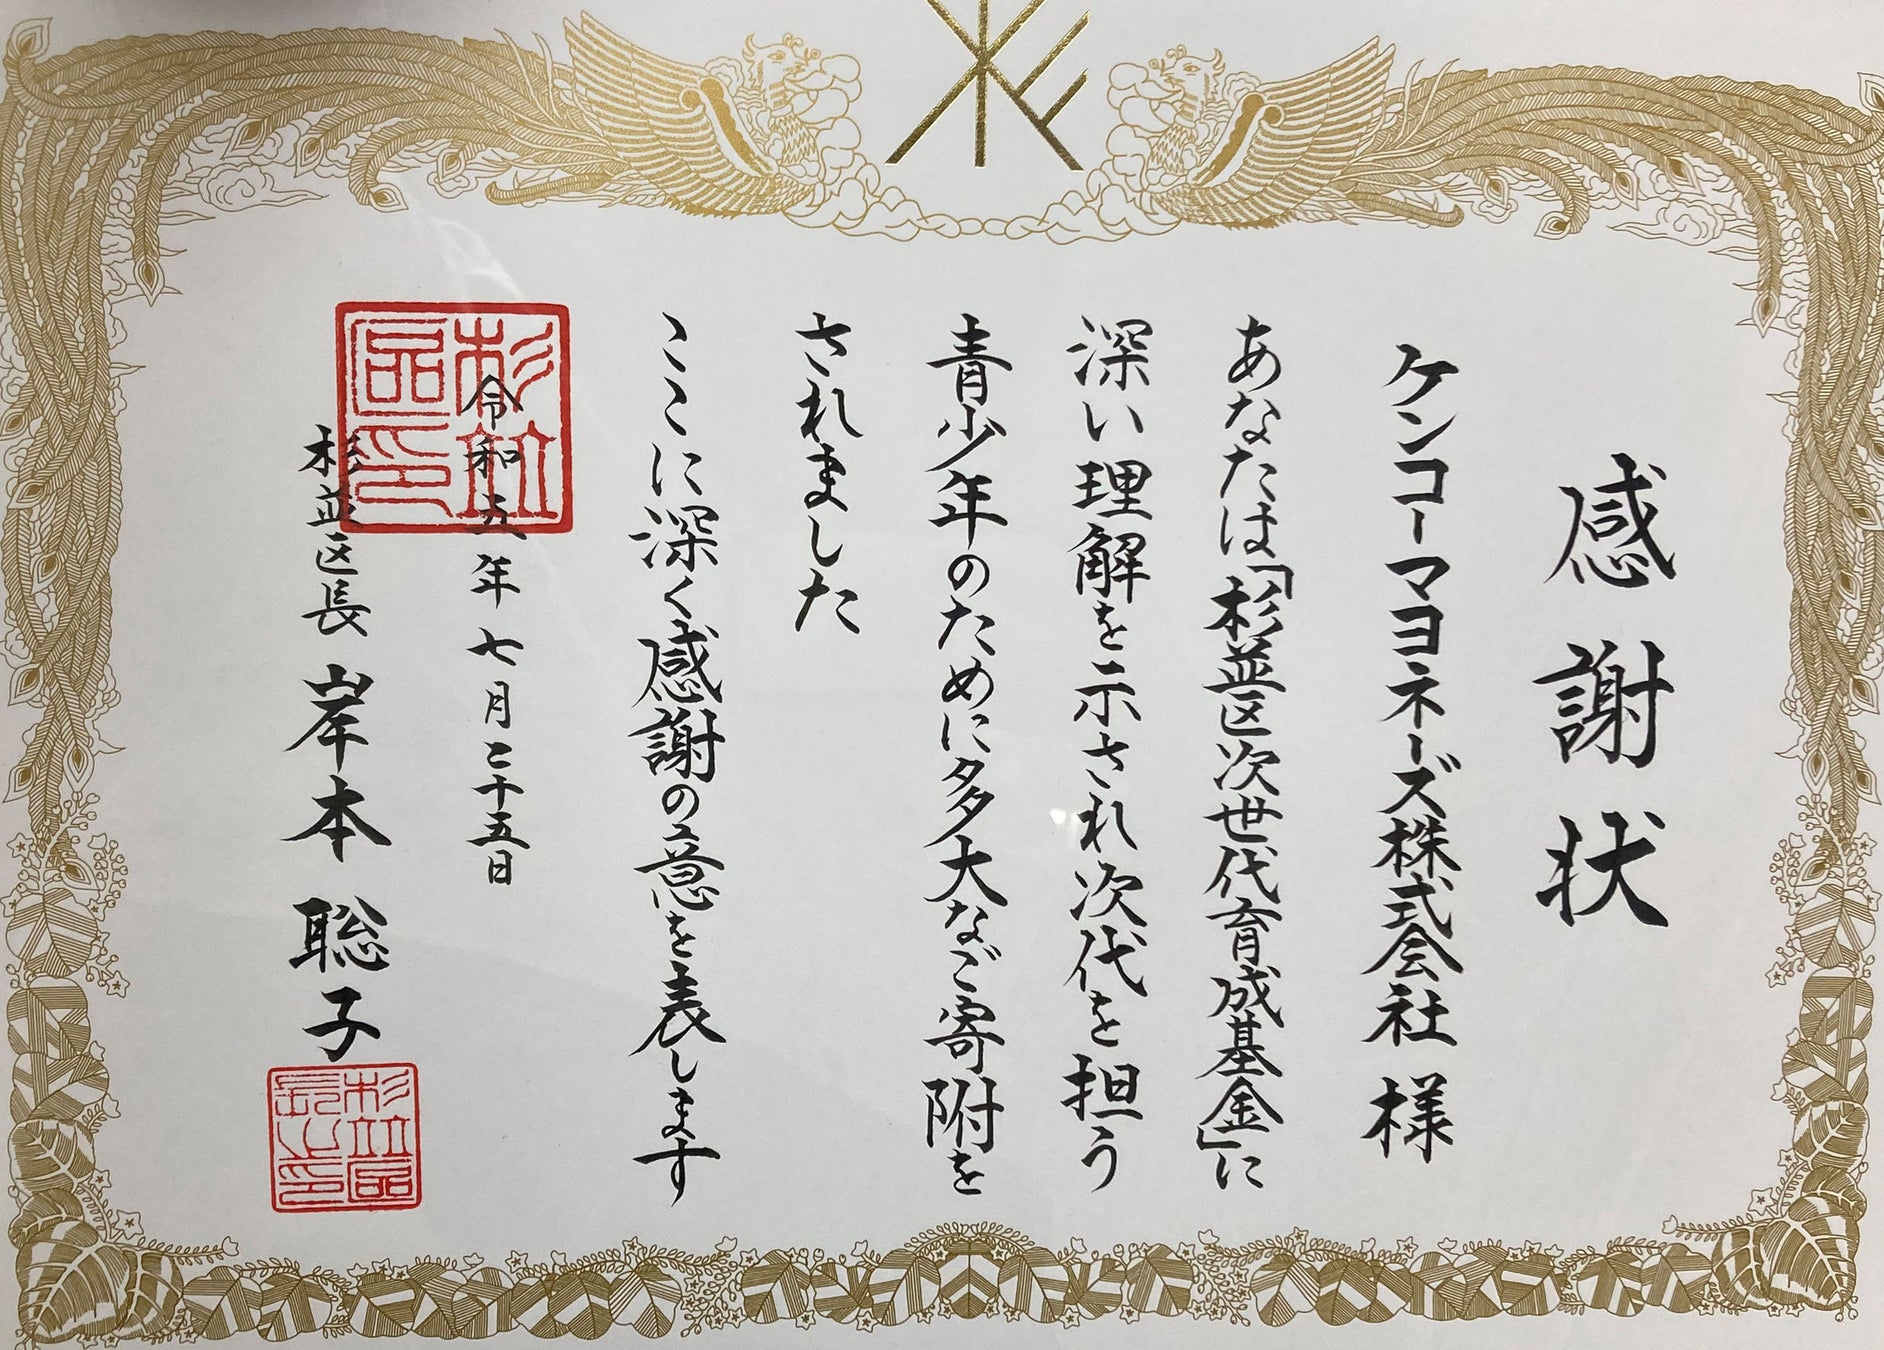 感謝状
ケンコーマヨネーズ株式会社 様
あなたは「杉並区次世代育成基金」に
深い理解を示され次代を担う
青少年のために多大なご寄附を
されました
ここに深く感謝の意を表します
令和五年七月二十五日
杉並区長 岸本聡子
杉並区印
杉並区長之印